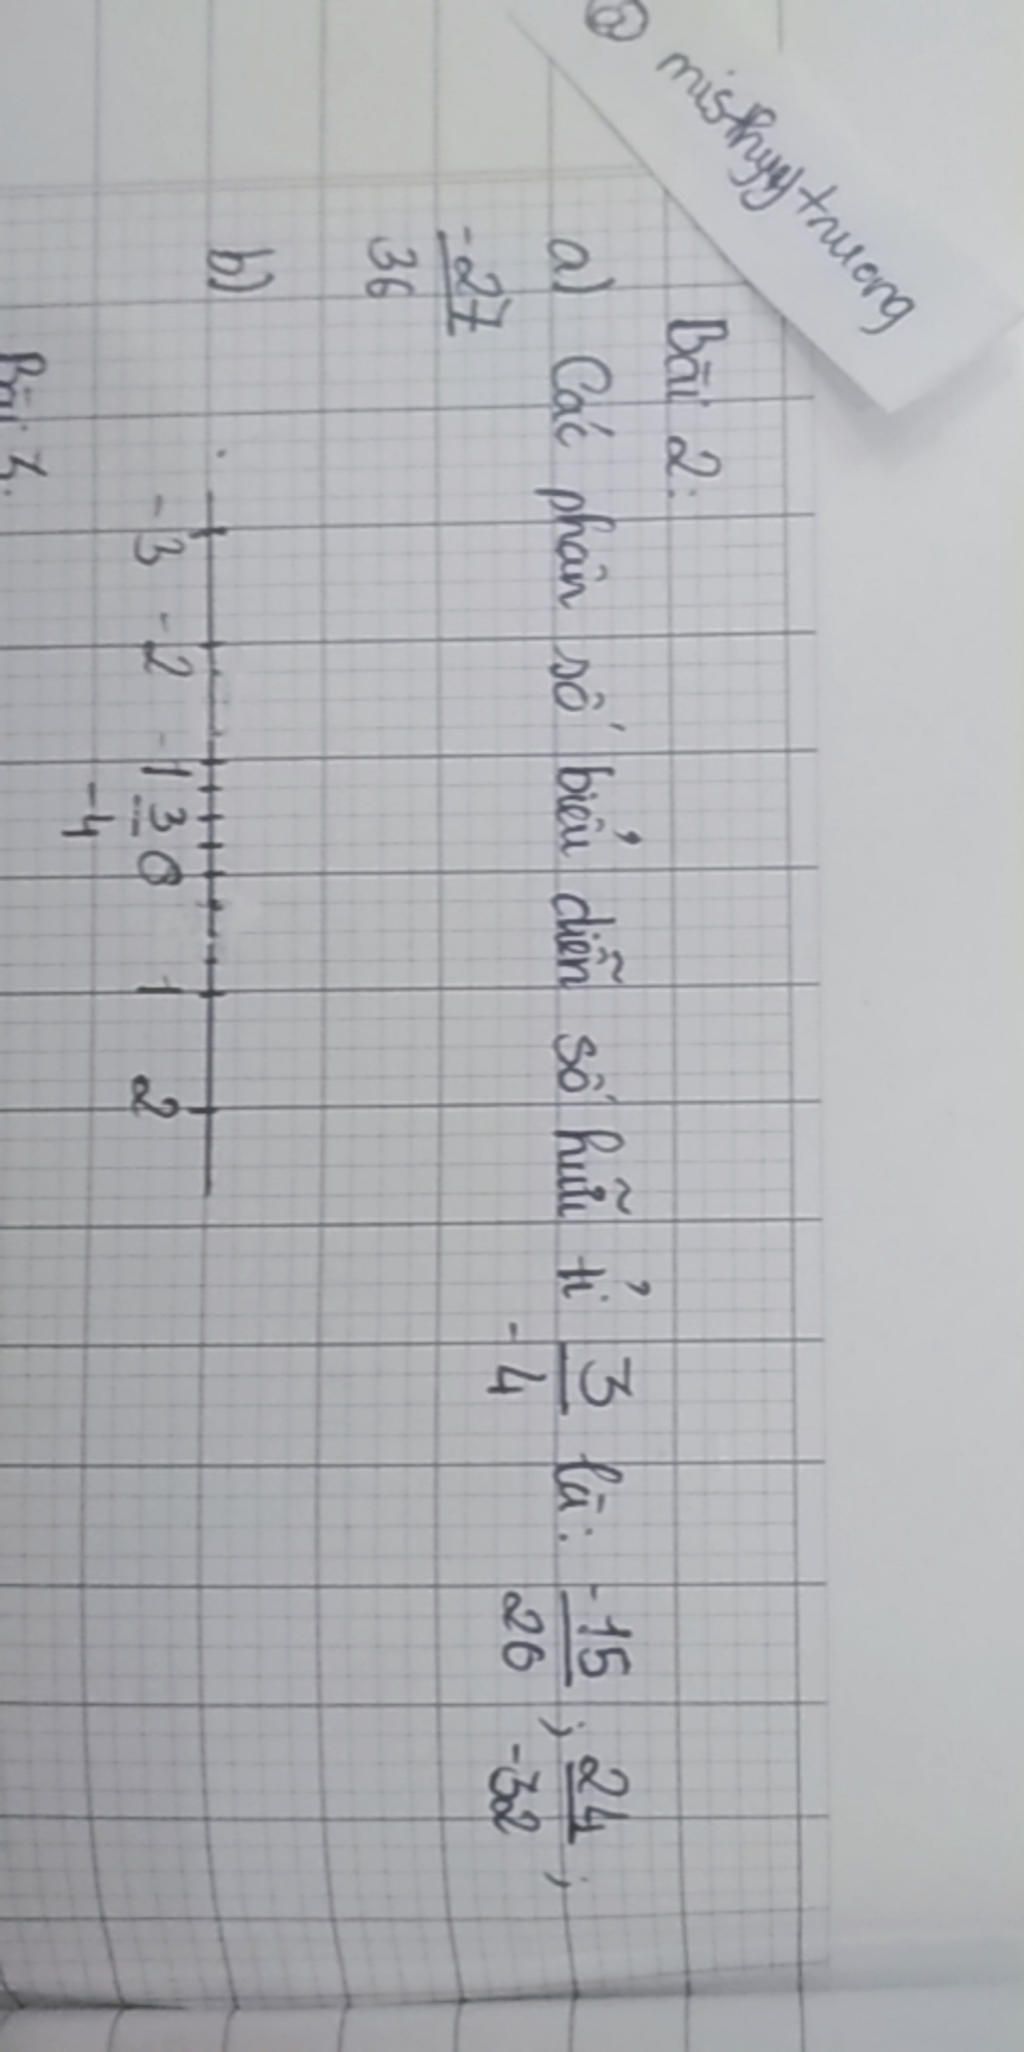 @ misthyytruong
Bài 2:
a) Các phân số biểu diễn số hữu tỉ 3/-4 là: -15/26 ; 24/-32 ;
-27/36
b)
-3 -2 -1 3/-4 0 1 2
Bài 3.